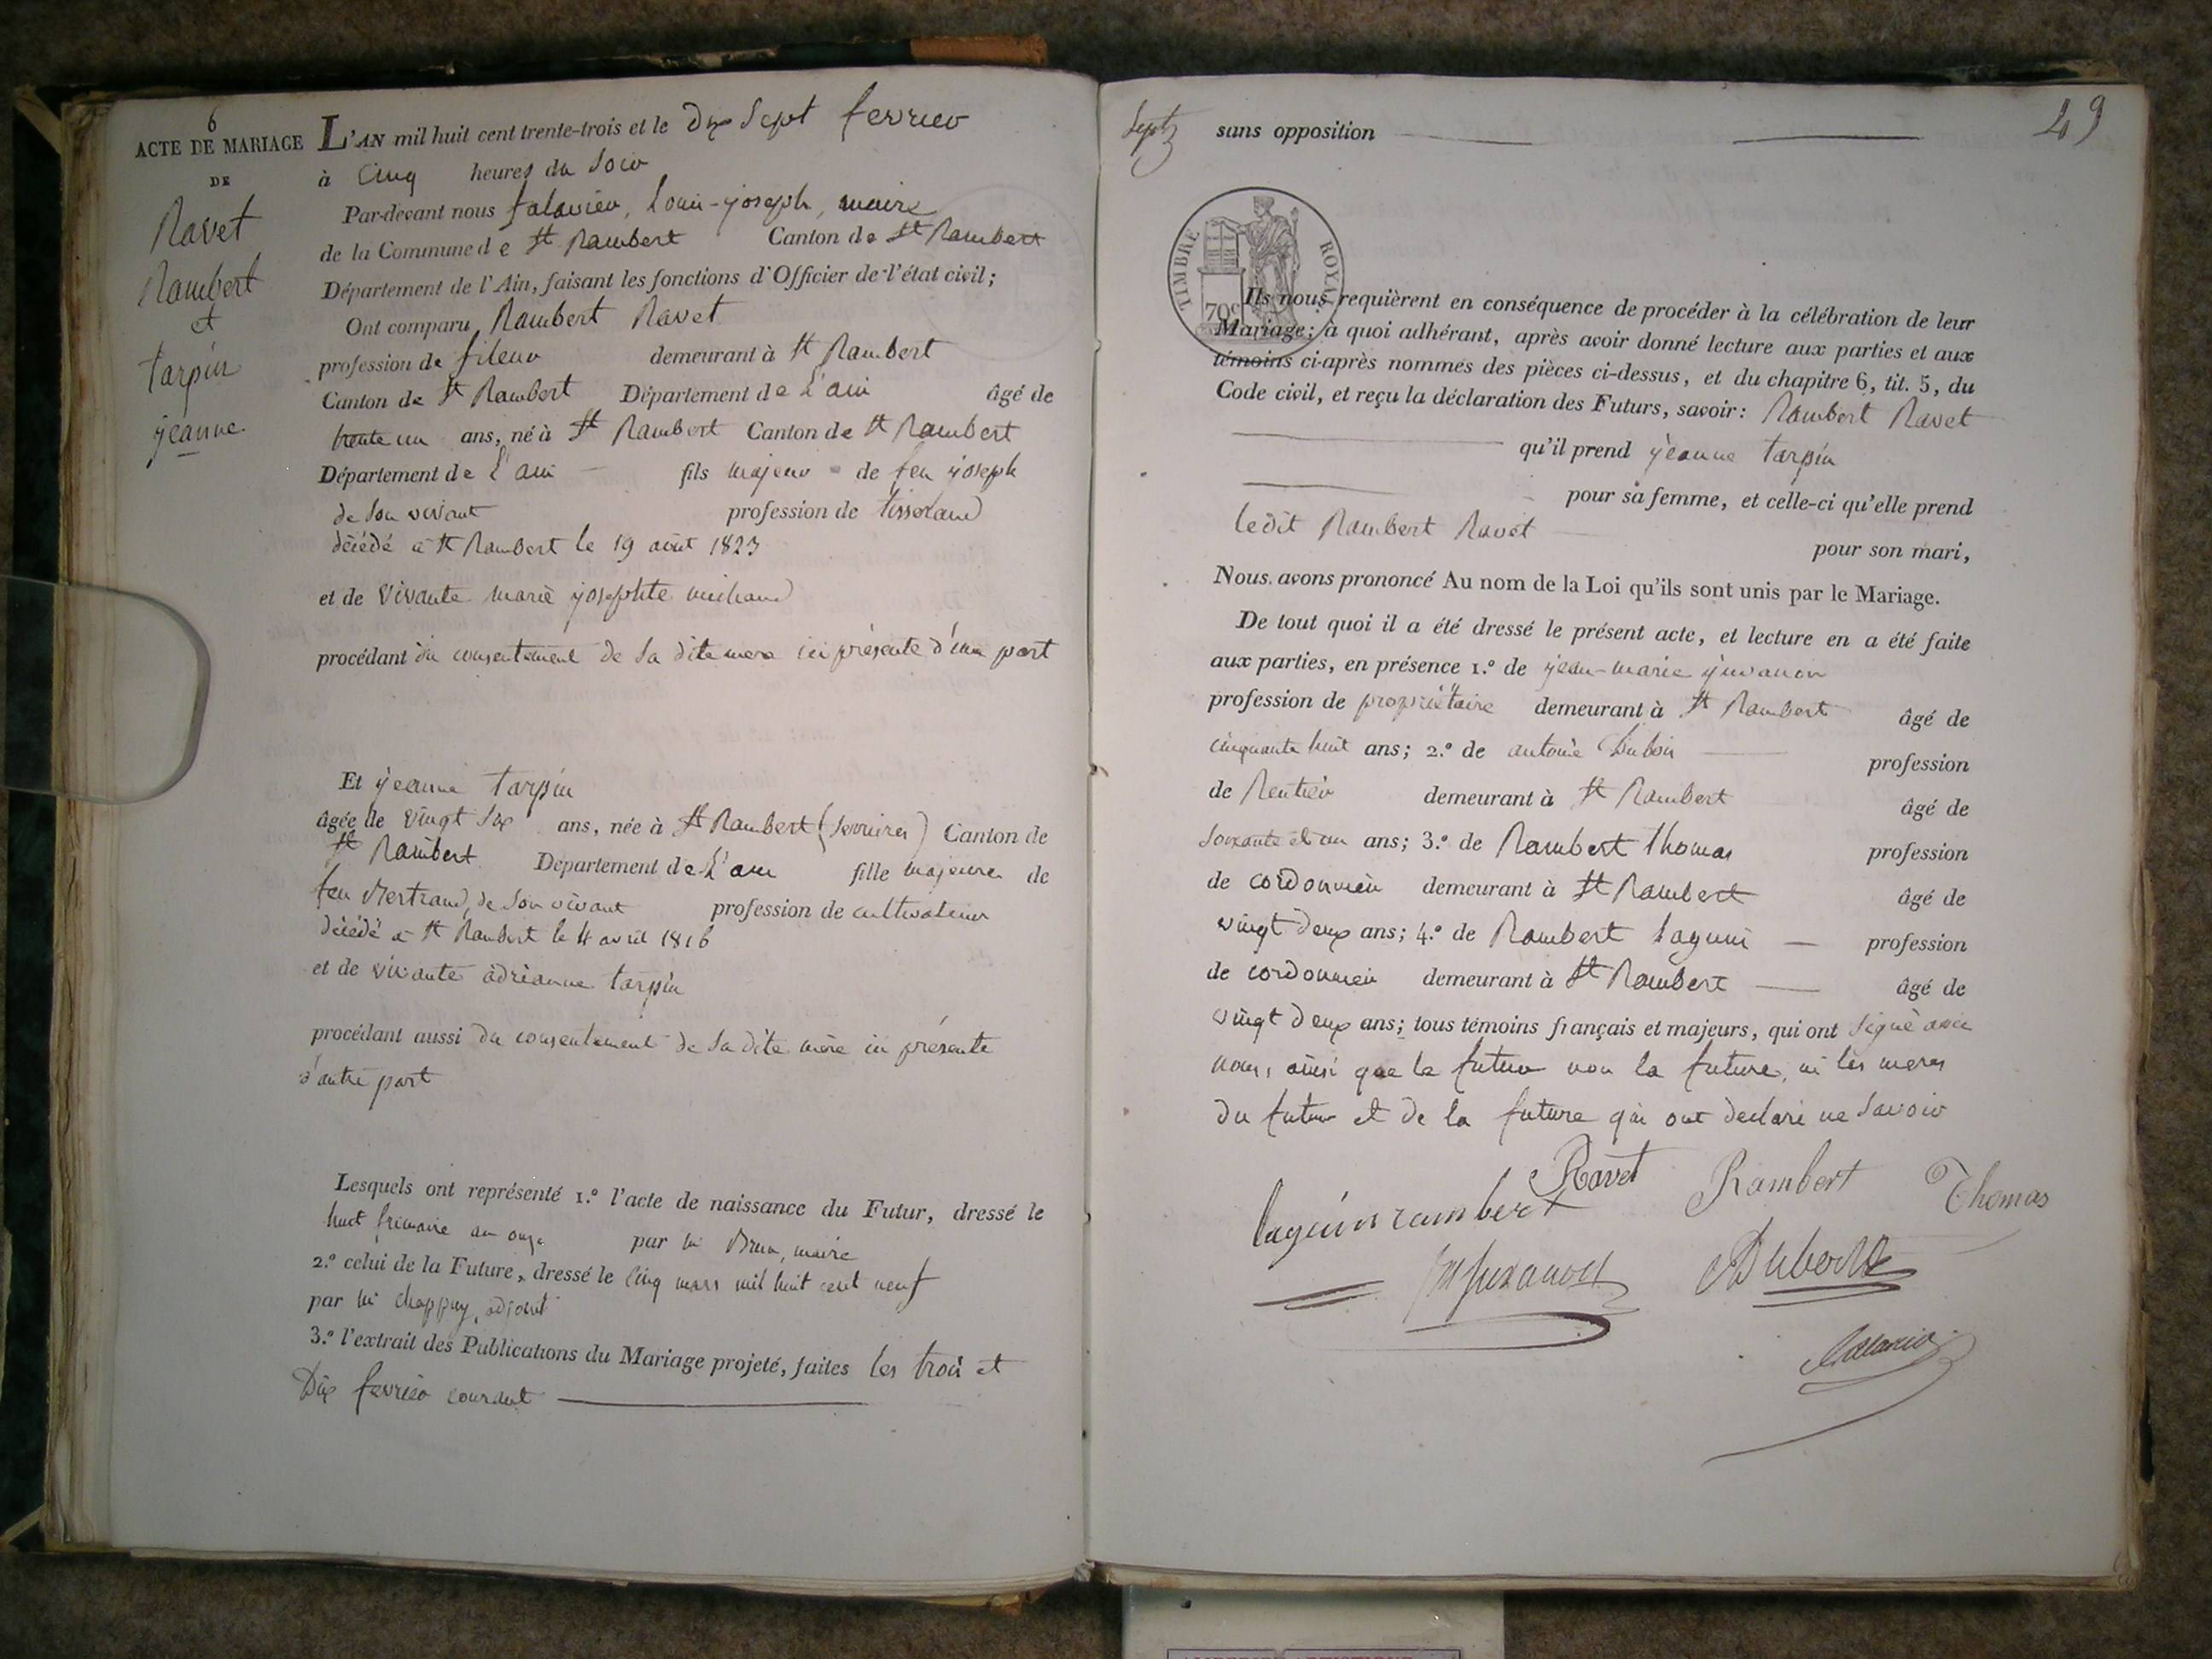 6
ACTE DE MARIAGE
DE
Ravet
Rambert
et
tarpin
jeanne
L'AN mil huit cent trente-trois et le Dix Sept fevrier
à Cinq heures du Soir
Par-devant nous falavier, Louis-joseph, maire
de la Commune de St Rambert Canton de St Rambert
Département de l'Ain, faisant les fonctions d'Officier de l'état civil;
Ont comparu Rambert Ravet
profession de fileur demeurant à St Rambert
Canton de St Rambert Département de L'ain âgé de
trente un ans, né à St Rambert Canton de St Rambert
Département de L'ain fils majeur de feu joseph
de Son vivant profession de tisserand
décédé à St Rambert le 19 août 1823
et de vivante marie josephte michaud
procédant du consentement de Sa dite mere ici présente d'une part
Et jeanne tarpin
âgée de vingt Six ans, née à St Rambert (Serrieres) Canton de
St Rambert Département de L'ain fille majeure de
feu Bertrand, de Son vivant profession de cultivateur
décédé à St Rambert le 4 avril 1816
et de vivante adrianne tarpin
procédant aussi du consentement de Sa dite mère ici présente
d'autre part
Lesquels ont représenté 1.º l'acte de naissance du Futur, dressé le
huit frimaire an onze par Mr Brun, maire
2.º celui de la Future, dressé le Cinq mars mil huit cent neuf
par Mr Chappuy, adjoint
3.º l'extrait des Publications du Mariage projeté, faites les trois et
Dix fevrier courant
Sept
sans opposition
49
TIMBRE ROYAL
70c
Ils nous requièrent en conséquence de procéder à la célébration de leur
Mariage; à quoi adhérant, après avoir donné lecture aux parties et aux
témoins ci-après nommés des pièces ci-dessus, et du chapitre 6, tit. 5, du
Code civil, et reçu la déclaration des Futurs, savoir: Rambert Ravet
qu'il prend jeanne tarpin
pour sa femme, et celle-ci qu'elle prend
ledit Rambert Ravet
pour son mari,
Nous avons prononcé Au nom de la Loi qu'ils sont unis par le Mariage.
De tout quoi il a été dressé le présent acte, et lecture en a été faite
aux parties, en présence 1.º de jean-marie juvanon
profession de propriétaire demeurant à St Rambert âgé de
cinquante huit ans; 2.º de antoine Dubois profession
de Rentier demeurant à St Rambert âgé de
Soixante et un ans; 3.º de Rambert Thomas profession
de cordonnier demeurant à St Rambert âgé de
vingt deux ans; 4.º de Rambert Laguin profession
de cordonnier demeurant à St Rambert âgé de
vingt deux ans; tous témoins français et majeurs, qui ont Signé avec
nous, ainsi que le futur non la future, ni les meres
du futur et de la future qui ont declaré ne Savoir
Ravet Rambert Thomas
laguin rambert
JM Juvanon ADubois
falavier